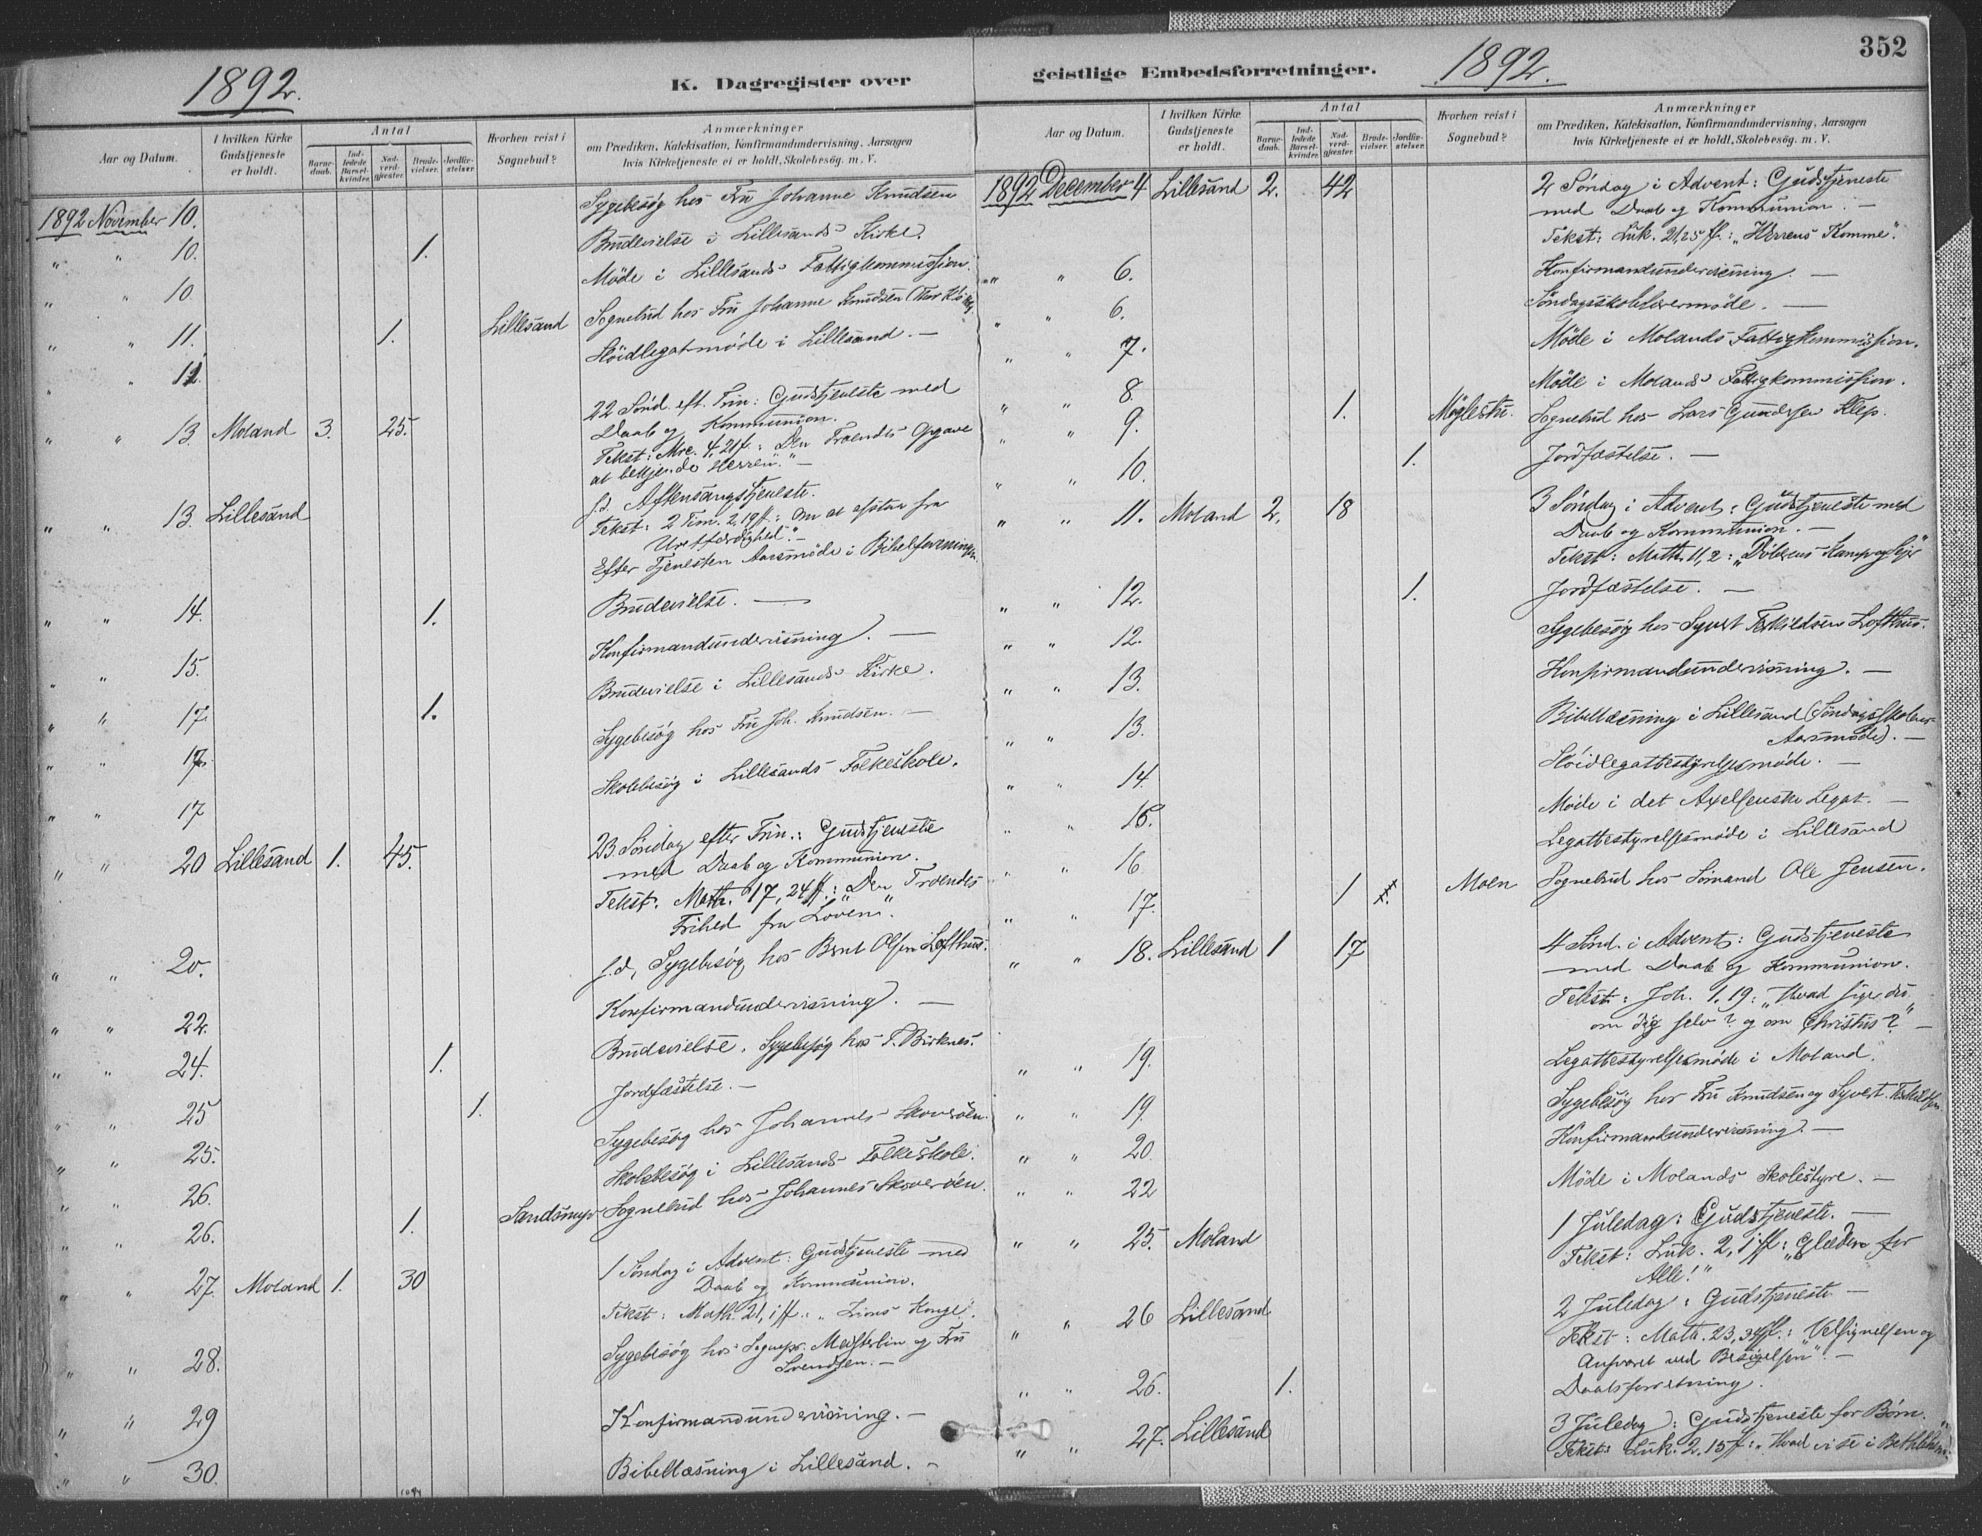 352
1892.
K. Dagregister over
Aar og Datum.
I hvilken Kirke Gudstjeneste er holdt.
Antal
Barne-daab.
Ind-ledede Barsel-kvinder.
Nad-verd-gjester.
Brude-vielser.
Jordfæ-stelser.
Hvorhen reist i Sognebud?
Anmærkninger
om Prædiken, Katekisation, Konfirmandundervisning, Aarsagen
hvis Kirketjeneste ei er holdt, Skolebesög. m. V.
1892 November 10. Sygebesøg hos Fru Johanne Knudsen
" " 10. 1. Brudevielse i Lillesands Kirke.
" " 10 Møde i Lillesands Fattigkommission.
" " 11. 1. Lillesand Sognebud hos Fru Johanne Knudsen
" 12. Sløidlegatmøde i Lillesand. —
" " 13. Moland 3. 25. 22 Sønd. eft. Trin: Gudstjeneste med
Daab og Kommunion.
Tekst: Mrc. 4, 21 f: Den Troendes Opgave
at bekjende Herren." —
" " 13. Lillesand f.d. Aftensangstjeneste.
Tekst: 2 Tim. 2, 19 ff: Om at afstaa fra
Uretfærdighed." —
Efter Tjenesten Aarsmøde i Bibelforeningen.
" " 14. 1. Brudevielse. —
" " 15. Konfirmandundervisning. —
" " 17. 1. Brudevielse i Lillesands Kirke.
" " 17. Sygebesøg hos Fru Joh. Knudsen. —
" " 17 Skolebesøg i Lillesands Folkeskole.
" " 20 Lillesand 1. 45. 23. Søndag efter Trin.: Gudstjeneste
med Daab og Kommunion.
Tekst: Math. 17, 24 ff: "Den Troendes
Frihed fra Loven".
" " 20. f.d. Sygebesøg hos Bernt Olsen Lofthus.
" " 22. Konfirmandundervisning. —
" " 24. 1. Brudevielse. Sygebesøg hos Birknes.
" " 25 1. Jordfæstelse. —
" " 25. Sygebesøg hos Johannes Skoverøen.
" " 26. Skolebesøg i Lillesands Folkeskole.
" " 26. 1. Sandsmyr Sognebud hos Johannes Skoverøen.
" " 27. Moland 1. 30 1 Søndag i Advent: Gudstjeneste med
Daab og Kommunion.
Tekst: Math. 21, 1 ff.: "Zions Konge".
" " 28. Sygebesøg hos Sognepr. Mesterlin og Fru
Svendsen. —
" " 29 Konfirmandundervisning. —
" " 30. Bibellæsning i Lillesand. —
geistlige Embedsforretninger.
1892.
Aar og Datum.
I hvilken Kirke Gudstjeneste er holdt.
Antal
Barne-daab.
Ind-ledede Barsel-kvinder.
Nad-verd-gjester.
Brude-vielser.
Jordfæ-stelser.
Hvorhen reist i Sognebud?
Anmærkninger
om Prædiken, Katekisation, Konfirmandundervisning, Aarsagen
hvis Kirketjeneste ei er holdt, Skolebesög. m. V.
1892 December 4 Lillesand 2. 42 2 Søndag i Advent: Gudstjeneste
med Daab og Kommunion. —
Tekst: Luk. 21, 25 ff.: "Herrens Komme".
" " 6. Konfirmandundervisning. —
" " 6. Søndagsskolelærermøde. —
" " 7. Møde i Molands Fattigkommission.
" " 8. Møde i Molands Fattigkommission.
" " 9. 1. Møglestu. Sognebud hos Lars Gundersen Klep.
" " 10. 1. Jordfæstelse. —
" " 11. Moland 2. 18 3 Søndag i Advent: Gudstjeneste med
Daab og Kommunion. —
Tekst: Math. 11, 2: "Døberens Kamp og Sejr"
" " 12. 1. Jordfæstelse. —
" " 12. Sygebesøg hos Syvert Terkildsen Lofthus.
" " 13. Konfirmandundervisning. —
" " 13. Bibellæsning i Lillesand (Søndagsskolens
Aarsmøde). —
" " 14. Sløidlegatbestyrelsesmøde. —
" " 16. Møde i det Axelsenske Legat. —
" " 16 Legatbestyrelsesmøde i Lillesand
" " 17. 1 Moen Sognebud hos Sømand Ole Jensen.
" " 18. Lillesand 1 17 4 Sønd. i Advent: Gudstjeneste
med Daab og Kommunion.
Tekst: Joh. 1, 19: "Hvad siger du
om dig selv? og om Christus?" —
" " 19. Legatbestyrelsesmøde i Moland.
" " 19. Sygebesøg hos Fru Knudsen og Syvert Terkildsen
" " 20 Konfirmandundervisning. —
" " 22 Møde i Molands Skolestyre. —
" " 25. Moland 1 Juledag: Gudstjeneste. —
Tekst: Luk. 2, 1 ff: "Glæden for
Alle!"
" " 26 Lillesand 2 Juledag: Gudstjeneste —
Tekst: Math. 23, 34 ff.: "Velsignelsen og
Ansvaret ved Besøgelsen". —
" " 26. 1. Daabsforretning.
" " 27. Lillesand 3 Juledag: Gudstjeneste for Børn.
Tekst: Luk. 2, 15 ff: "Hvad vi se i Bethlehem"